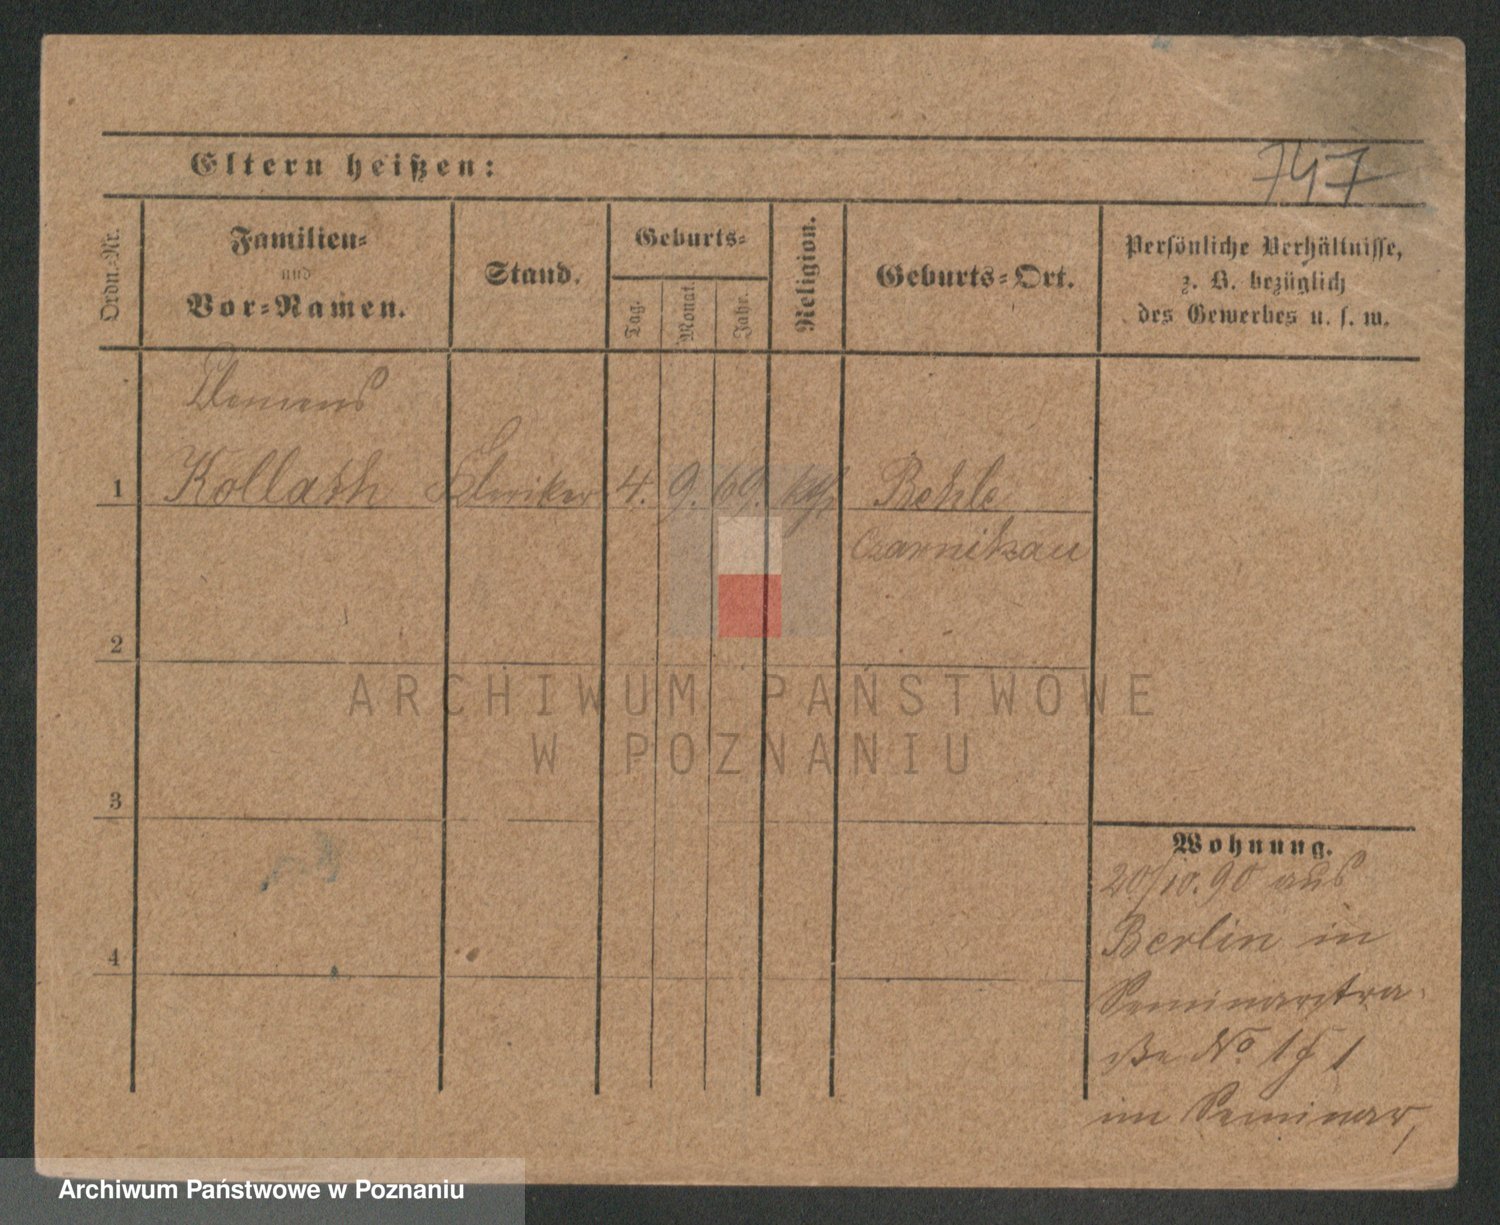 747
Eltern heißen:
Ordn.-Nr.
Familien-
und
Vor-Namen.
Stand.
Geburts-
Tag.
Monat.
Jahr.
Religion.
Geburts-Ort.
Persönliche Verhältnisse,
z. B. bezüglich
des Gewerbes u. s. w.
Clemens
1 Kollath Kleriker 4. 9. 69. kth Behle
Czarnikau
2
ARCHIWUM PAŃSTWOWE
W POZNANIU
3
Wohnung.
20/10. 90 aus
Berlin in
Seminarstra-
ße No
im Seminar,
4
Archiwum Państwowe w Poznaniu